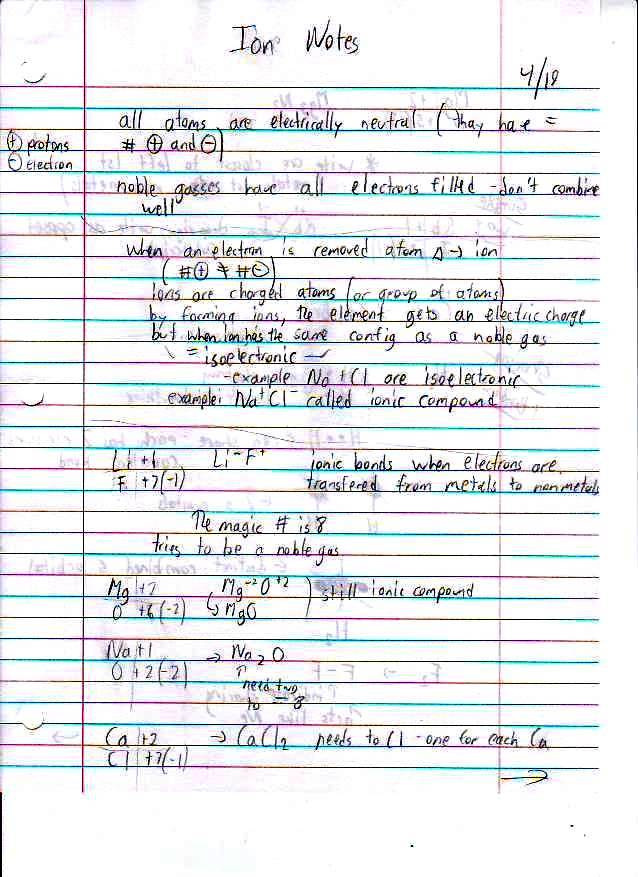 Ion Notes
4/19
all atoms are electrically neutral (thay have =
⊕ protons # ⊕ and ⊖)
⊖ electron
noble gasses have all electrons filled - don't combine
well
When an electron is removed atom Δ → ion
(#⊕ ≠ #⊖)
ions are charged atoms (or group of atoms)
by forming ions, the element gets an electric charge
but when ion has the same config as a noble gas
= isoelectronic
- example Na + Cl are isoelectronic
example: Na⁺Cl⁻ called ionic compound
Li +1 Li⁻F⁺ ionic bonds when electrons are
F +7(-1) transfered from metals to nonmetals
The magic # is 8
tries to be a noble gas
Mg +2 Mg⁻²O⁺² ) still ionic compound
O +6(-2) ↳ MgO
Na +1 → Na₂O
O +2(-2) ↑
need two
to = 8
Ca +2 → CaCl₂ needs to Cl - one for each Ca
Cl +7(-1)
→